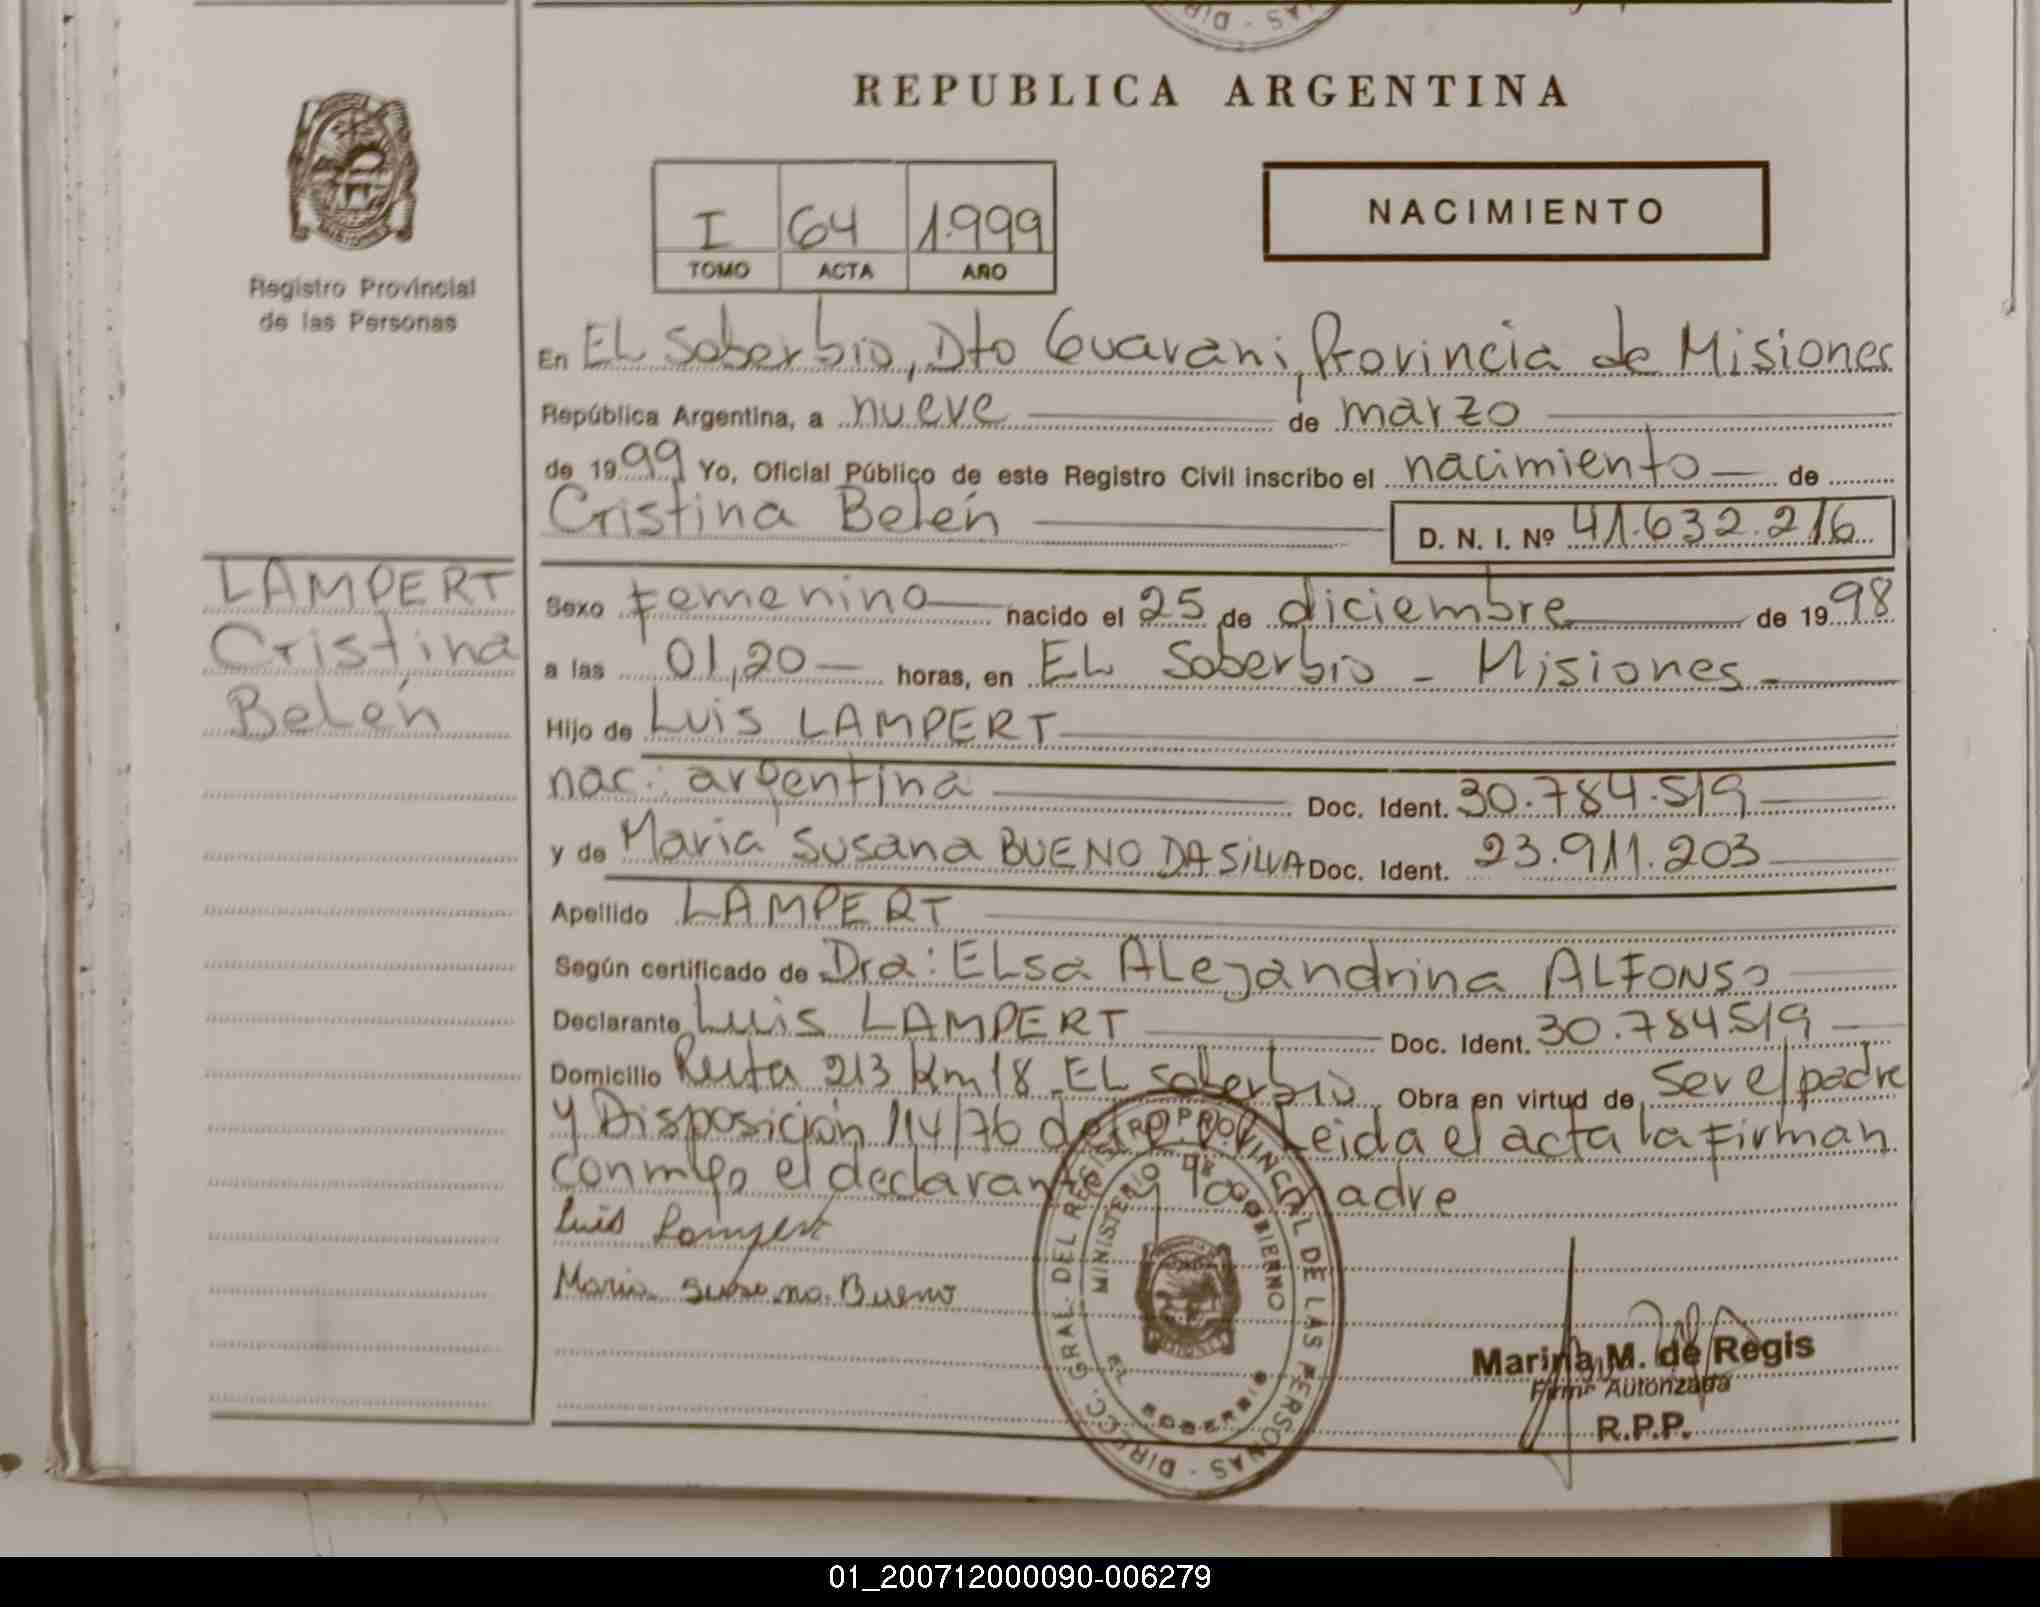 REPUBLICA ARGENTINA
I 64 1.999
TOMO ACTA AÑO
NACIMIENTO
Registro Provincial
de las Personas
En EL Soberbio, Dto Guarani, Provincia de Misiones
República Argentina, a nueve de marzo
de 1999 Yo, Oficial Público de este Registro Civil inscribo el nacimiento de
Cristina Belén D. N. I. Nº 41.632.216
LAMPERT
Cristina
Belén
Sexo Femenino nacido el 25 de diciembre de 1998
a las 01,20 horas, en EL Soberbio - Misiones
Hijo de Luis LAMPERT
nac: argentina Doc. Ident. 30.784.519
y de Maria Susana BUENO DA SILVA Doc. Ident. 23.911.203
Apellido LAMPERT
Según certificado de Dra: ELsa ALejandrina ALFONSO
Declarante Luis LAMPERT Doc. Ident. 30.784.519
Domicilio Ruta 213 Km 18 EL Soberbio Obra en virtud de ser el padre
y Disposición 114/76 del Leida el acta la firman
conmigo el declarante y la madre
Luis Lampert
Maria Susana Bueno
DIRECC. GRAL. DEL REGISTRO PROVINCIAL DE LAS PERSONAS
MINISTERIO DE GOBIERNO
EL SOBERBIO
Marina M. de Regis
Firma Autorizada
R.P.P.
01_200712000090-006279